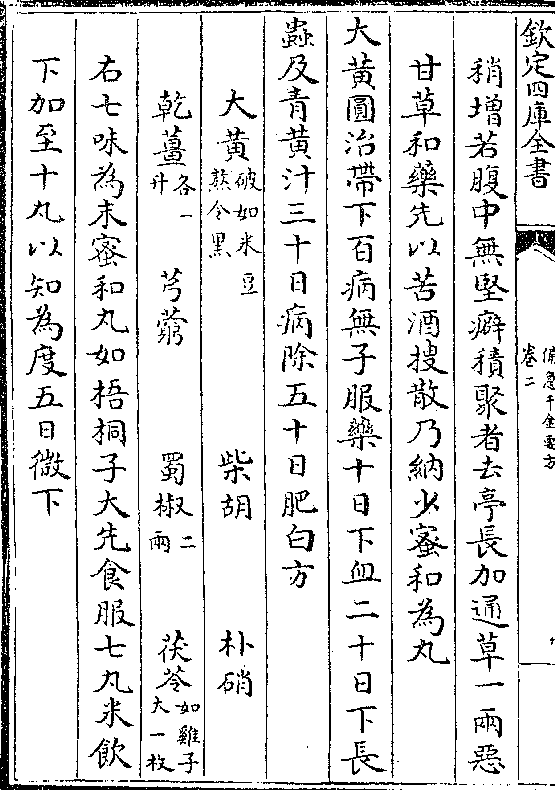 欽定四庫全書
備急千金要方
卷二
稍增若腹中無堅癖積聚者去亭長加通草一兩惡
甘草和藥先以苦酒搜散乃納少蜜和為丸
大黃圓治帶下百病無子服藥十日下血二十日下長
蟲及青黃汁三十日病除五十日肥白方
大黃破如米豆熬令黑 柴胡 朴硝
乾薑各一升 芎藭 蜀椒二兩 茯苓如雞子大一枚
右七味為末蜜和丸如梧桐子大先食服七丸米飲
下加至十丸以知為度五日微下